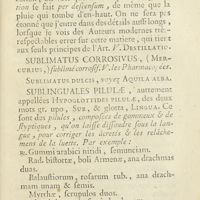 tion se fait per descensum, de même que
la pluie qui tombe d'en-haut. On ne sera pas
étonné que j'entre dans des détails aussi longs,
lorsque je vois des Auteurs modernes très-
respectables errer sur cette matiere, qui tient
aux seuls principes de l'Art. V. DESTILLATIO.
SUBLIMATUS CORROSIVUS, (MER-
CURIUS,) sublimé corrosif. V. les Pharmacopées.
SUBLIMATUS DULCIS, voyez AQUILA ALBA.
SUBLINGUALES PILULÆ, autrement
appellées HYPOGLOTTIDES PILULÆ, des deux
mots gr. υπο, Sub, & glotta, LINGUA. Ce
sont des pilules, composées de gommeux & de
styptiques, qu'on laisse dissoudre sous la lan-
gue, pour corriger les âcretés & les relâche-
mens de la luette. Par exemple:
℞. Gummi arabici nitidi, semunciam.
Rad. bistortæ, boli Armenæ, ana drachmas
duas.
Balaustiorum, rosarum rub., ana drach-
mam unam & semis.
Myrrhæ, scrupulos duos.